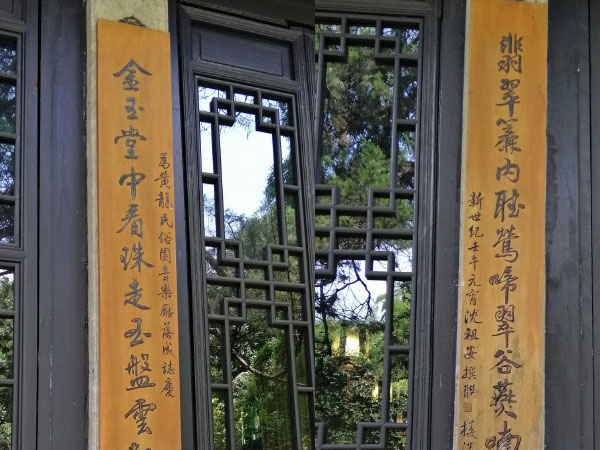 翡翠簾内聽鶯啼翠谷燕喃
新世紀壬午元宵沈祖安撰聯
為黃龍民俗園音樂廳落成誌慶
金玉堂中看珠走玉盤雲